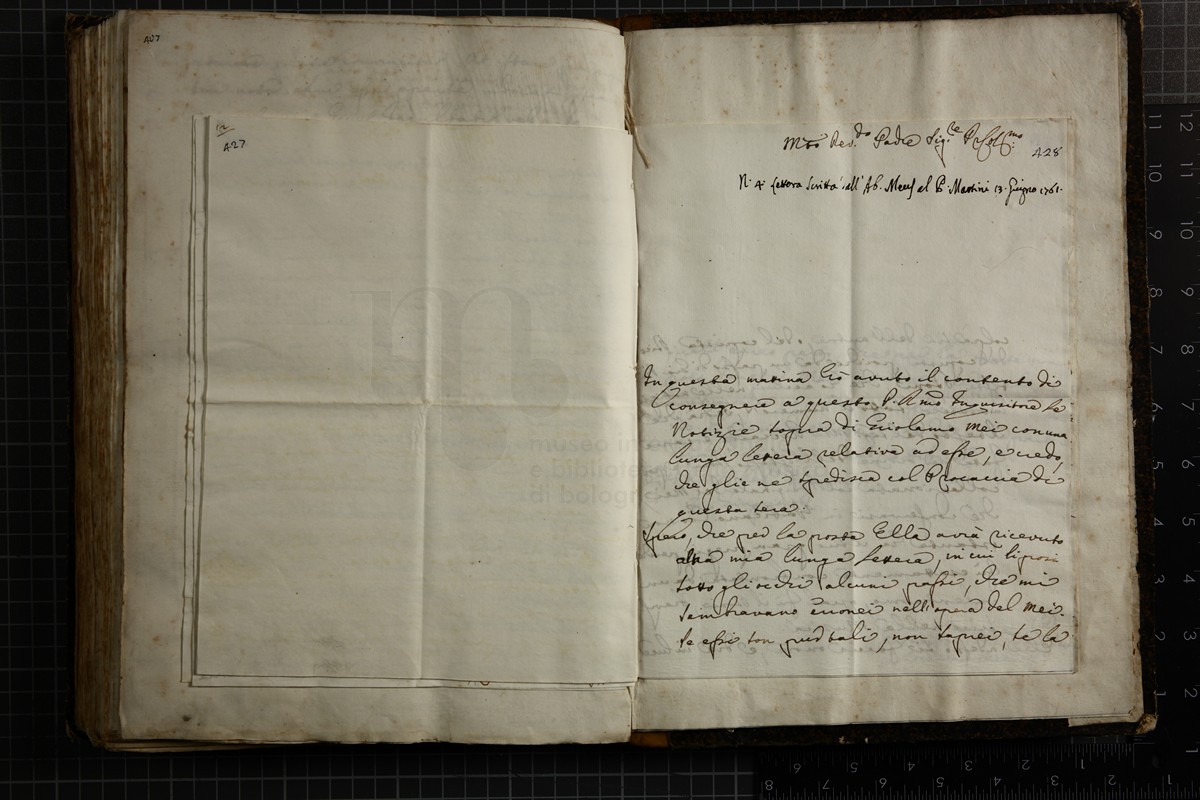 A07
12
A27
M.to Rev.do Padre Sig.re P.
A28
N. A. Lettera scritta dall' Ab. al P. Martini 13. Giugno 1761.
In questa matina hò avuto il contento di
consegnare a questo P. Rmo Inquisitore le
Notizie sopra di Girolamo Mei con una
lunga lettera relativa ad esse, e credo,
che glie ne spedisca col Procaccia di
questa sera.
Spero, che per la posta Ella avrà ricevuto
altra mia lunga lettera, in cui li posi
sotto gli occhi alcuni passi, che mi
sembravano erronei nell'opera del Mei.
Se essi son pur tali, non saprei, se la
museo
e biblioteca
di bologna